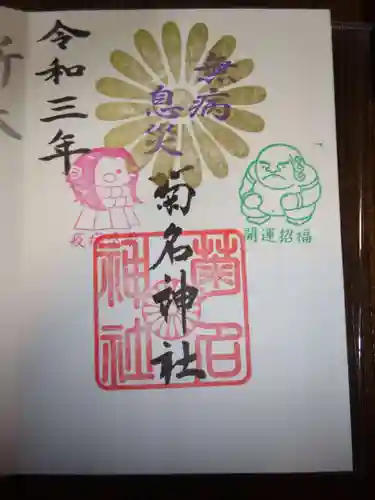 無病
息災
令和三年
菊名神社
開運招福
菊名
神社